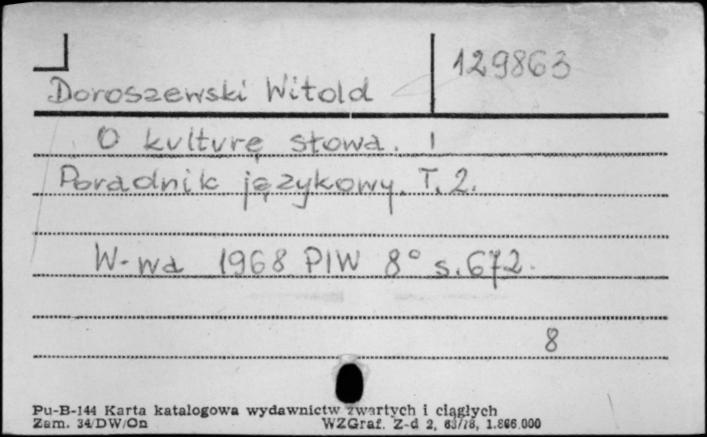 129863
Doroszewski Witold
O kulturę słowa.
Poradnik językowy. T. 2.
W-wa 1968 PIW 8° s. 672.
8
Pu-B-144 Karta katalogowa wydawnictw zwartych i ciągłych
Zam. 34/DW/On WZGraf. Z-d 2, 63/78, 1.866.000